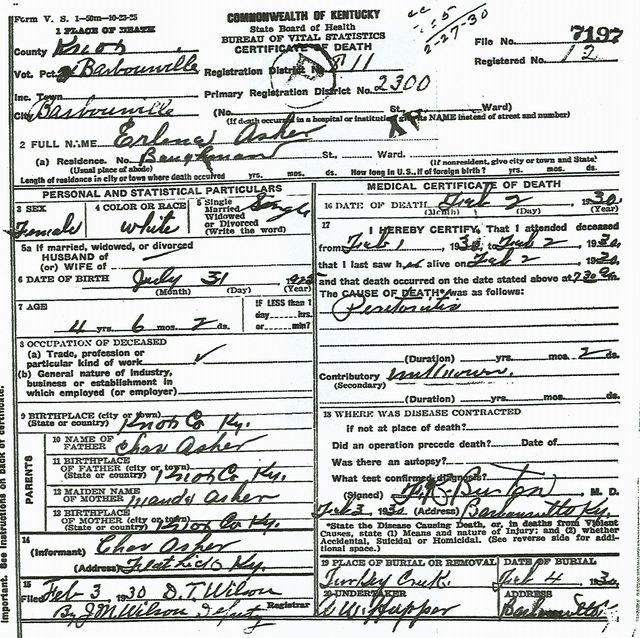 Form V. S. 1-50m-10-23-25
COMMONWEALTH OF KENTUCKY
State Board of Health
BUREAU OF VITAL STATISTICS
CERTIFICATE OF DEATH
2-27-30
File No. 7197
Registered No. 12
1 PLACE OF DEATH
County Knox
Vot. Pct. Barbourville
Registration District No. 811
Inc. Town
Primary Registration District No. 2300
City Barbourville
(No. St. Ward)
(If death occurred in a hospital or institution, give its NAME instead of street and number)
2 FULL NAME Asher
(a) Residence. No. St., Ward.
(Usual place of abode) (If nonresident, give city or town and State)
Length of residence in city or town where death occurred yrs. mos. ds. How long in U. S., if of foreign birth? yrs. mos. ds.
PERSONAL AND STATISTICAL PARTICULARS
3 SEX Female
4 COLOR OR RACE white
5 Single Married, Widowed or Divorced (Write the word) Single
5a If married, widowed, or divorced
HUSBAND of
(or) WIFE of
6 DATE OF BIRTH July 31 1925
(Month) (Day) (Year)
7 AGE
4 yrs. 6 mos. 2 ds.
IF LESS than 1 day----hrs. or----min?
8 OCCUPATION OF DECEASED
(a) Trade, profession or particular kind of work
(b) General nature of industry, business or establishment in which employed (or employer)
9 BIRTHPLACE (city or town)
(State or country) Knox Co Ky.
PARENTS
10 NAME OF FATHER Chas Asher
11 BIRTHPLACE OF FATHER (city or town)
(State or country) Knox Co Ky.
12 MAIDEN NAME OF MOTHER Manda Asher
13 BIRTHPLACE OF MOTHER (city or town)
(State or country) Knox Co Ky.
14
(Informant) Chas Asher
(Address) Ky.
15
Filed Feb 3, 1930 D.T. Wilson
By J M Wilson deputy Registrar
MEDICAL CERTIFICATE OF DEATH
16 DATE OF DEATH Feb 2 1930
(Month) (Day) (Year)
17
I HEREBY CERTIFY, That I attended deceased
from Feb 1, 1930, to Feb 2, 1930,
that I last saw her alive on Feb 2, 1930,
and that death occurred on the date stated above at 7 30 m.
The CAUSE OF DEATH* was as follows:
Peritonitis
(Duration) yrs. mos. 2 ds.
Contributory unknown.
(Secondary)
(Duration) yrs. mos. ds.
18 WHERE WAS DISEASE CONTRACTED
if not at place of death?
Did an operation precede death? Date of
Was there an autopsy?
What test confirmed diagnosis?
(Signed) Burton M. D.
Feb 3, 1930 (Address) Barbourville Ky.
*State the Disease Causing Death, or, in deaths from Violent
Causes, state (1) Means and nature of Injury; and (2) whether
Accidental, Suicidal or Homicidal. (See reverse side for addi-
tional space.)
19 PLACE OF BURIAL OR REMOVAL
Turkey Crek.
DATE OF BURIAL
Feb 4, 1930
20 UNDERTAKER
W Hopper
ADDRESS
Barbourville
important. See instructions on back of certificate.